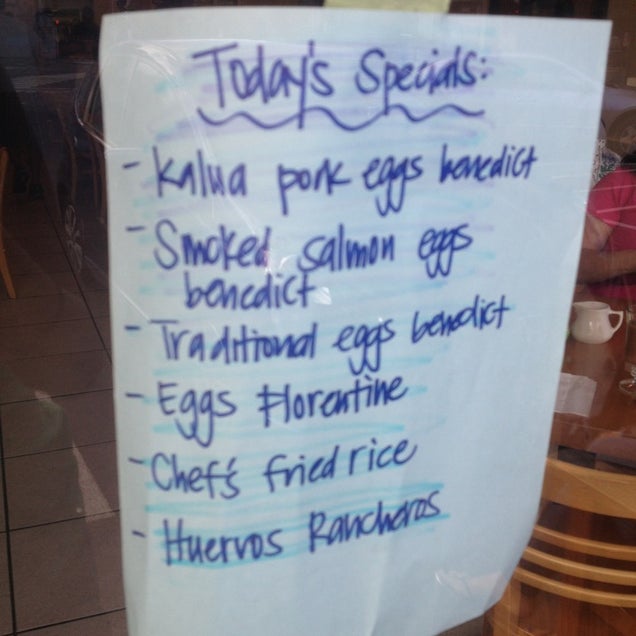 Today's Specials:
- Kalua pork eggs benedict
- Smoked salmon eggs
benedict
- Traditional eggs benedict
- Eggs Florentine
- Chef's fried rice
- Huervos Rancheros